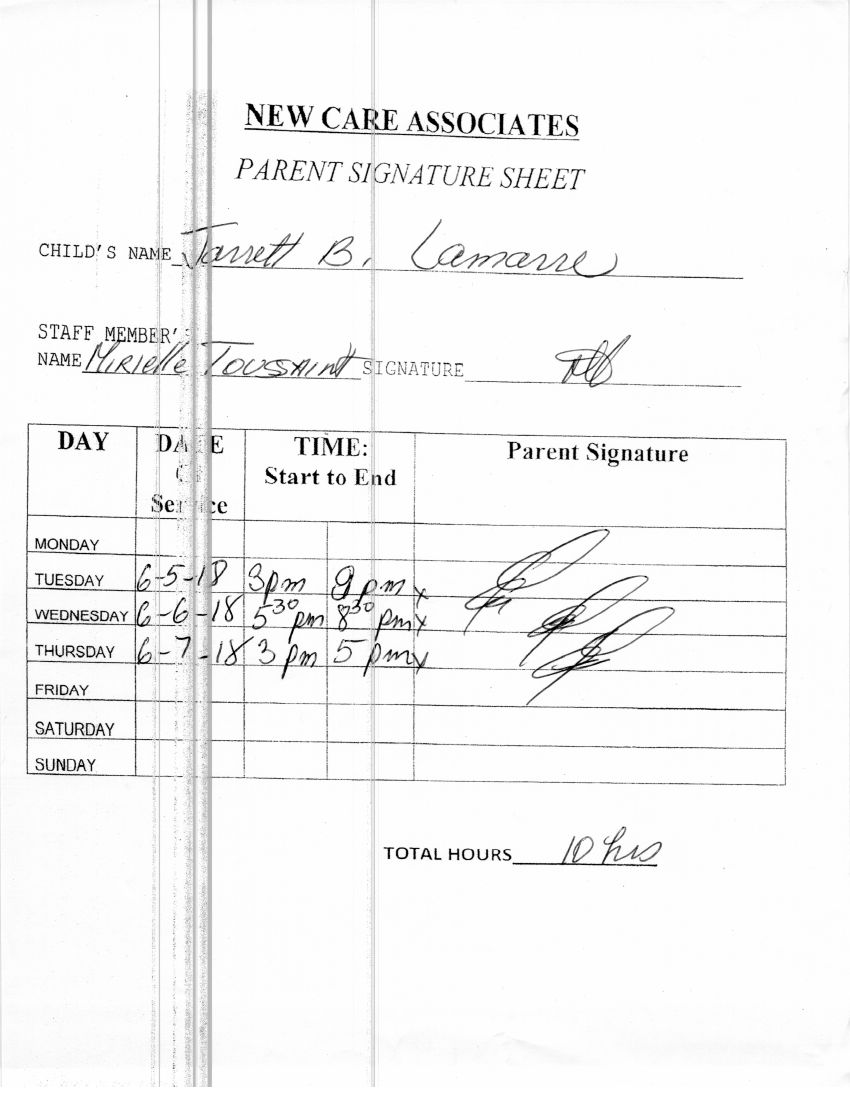 NEW CARE ASSOCIATES
PARENT SIGNATURE SHEET
CHILD'S NAME Jarrett B. Lamarre
STAFF MEMBER'S
NAME Mirielle Toussaint SIGNATURE
DAY DATE TIME: Parent Signature
Of Start to End
Service
MONDAY
TUESDAY 6-5-18 3pm 9pm x
WEDNESDAY 6-6-18 5 30 pm 8 30 pm x
THURSDAY 6-7-18 3pm 5pm x
FRIDAY
SATURDAY
SUNDAY
TOTAL HOURS 10 hrs